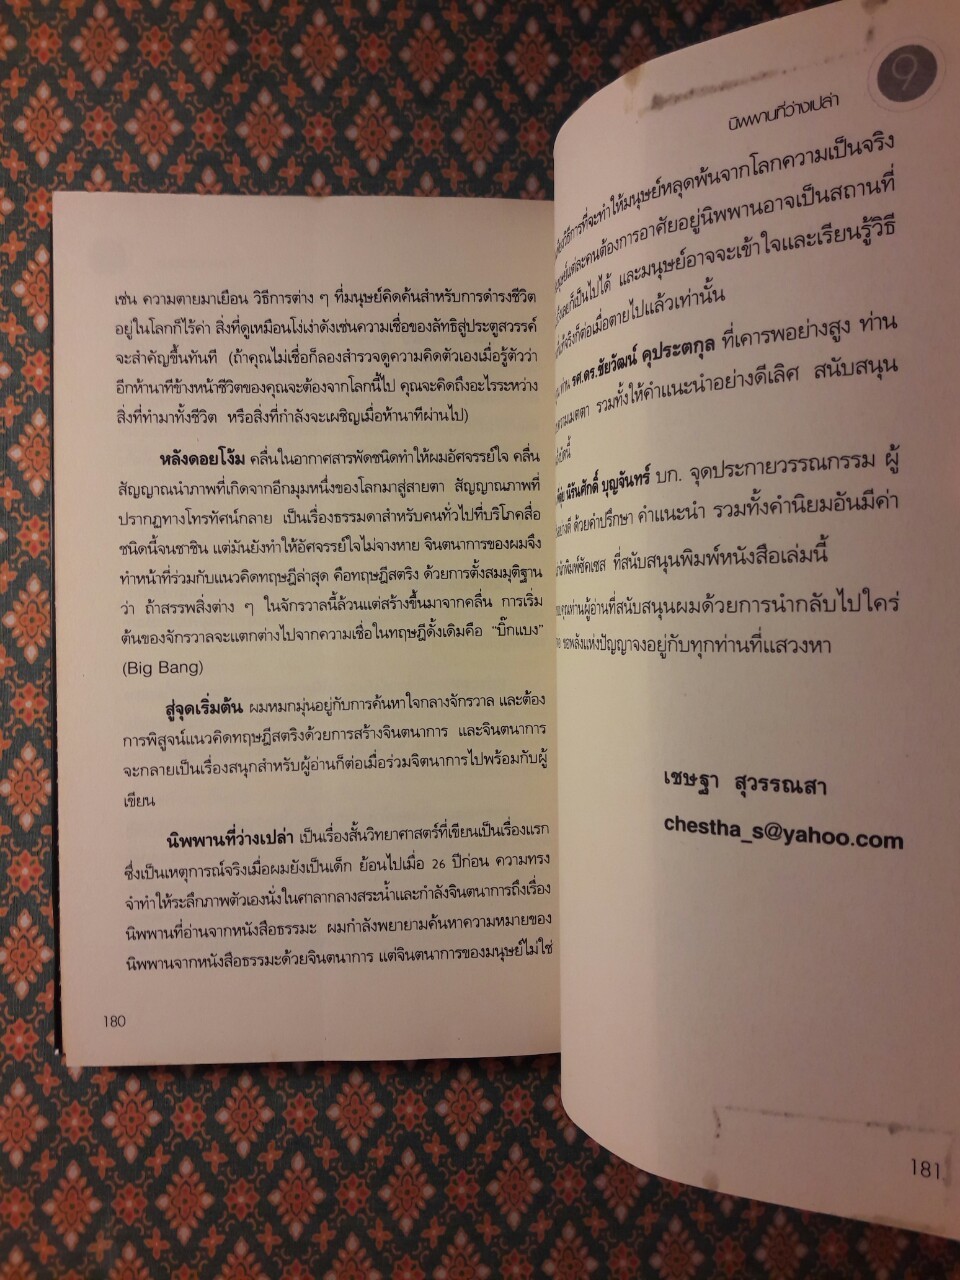 เช่น ความตายมาเยือน วิธีการต่าง ๆ ที่มนุษย์คิดค้นสำหรับการดำรงชีวิต
อยู่ในโลกก็ไร้ค่า สิ่งที่ดูเหมือนโง่เง่าดังเช่นความเชื่อของลัทธิสู่ประตูสวรรค์
จะสำคัญขึ้นทันที (ถ้าคุณไม่เชื่อก็ลองสำรวจดูความคิดตัวเองเมื่อรู้ตัวว่า
อีกห้านาทีข้างหน้าชีวิตของคุณจะต้องจากโลกนี้ไป คุณจะคิดถึงอะไรระหว่าง
สิ่งที่ทำมาทั้งชีวิต หรือสิ่งที่กำลังจะเผชิญเมื่อห้านาทีผ่านไป)
หลังดอยโง้ม คลื่นในอากาศสารพัดชนิดทำให้ผมอัศจรรย์ใจ คลื่น
สัญญาณนำภาพที่เกิดจากอีกมุมหนึ่งของโลกมาสู่สายตา สัญญาณภาพที่
ปรากฏทางโทรทัศน์กลาย เป็นเรื่องธรรมดาสำหรับคนทั่วไปที่บริโภคสื่อ
ชนิดนี้จนชาชิน แต่มันยังทำให้อัศจรรย์ใจไม่จางหาย จินตนาการของผมจึง
ทำหน้าที่ร่วมกับแนวคิดทฤษฎีล่าสุด คือทฤษฎีสตริง ด้วยการตั้งสมมุติฐาน
ว่า ถ้าสรรพสิ่งต่าง ๆ ในจักรวาลนี้ล้วนแต่สร้างขึ้นมาจากคลื่น การเริ่ม
ต้นของจักรวาลจะแตกต่างไปจากความเชื่อในทฤษฎีดั้งเดิมคือ "บิ๊กแบง"
(Big Bang)
สู่จุดเริ่มต้น ผมหมกมุ่นอยู่กับการค้นหาใจกลางจักรวาล และต้อง
การพิสูจน์แนวคิดทฤษฎีสตริงด้วยการสร้างจินตนาการ และจินตนาการ
จะกลายเป็นเรื่องสนุกสำหรับผู้อ่านก็ต่อเมื่อร่วมจิตนาการไปพร้อมกับผู้
เขียน
นิพพานที่ว่างเปล่า เป็นเรื่องสั้นวิทยาศาสตร์ที่เขียนเป็นเรื่องแรก
ซึ่งเป็นเหตุการณ์จริงเมื่อผมยังเป็นเด็ก ย้อนไปเมื่อ 26 ปีก่อน ความทรง
จำทำให้ระลึกภาพตัวเองนั่งในศาลากลางสระน้ำและกำลังจินตนาการถึงเรื่อง
นิพพานที่อ่านจากหนังสือธรรมะ ผมกำลังพยายามค้นหาความหมายของ
นิพพานจากหนังสือธรรมะด้วยจินตนาการ แต่จินตนาการของมนุษย์ไม่ใช่
180
9
นิพพานที่ว่างเปล่า
วิธีการที่จะทำให้มนุษย์หลุดพ้นจากโลกความเป็นจริง
แต่ละคนต้องการอาศัยอยู่นิพพานอาจเป็นสถานที่
ก็เป็นไปได้ และมนุษย์อาจจะเข้าใจและเรียนรู้วิธี
ก็ต่อเมื่อตายไปแล้วเท่านั้น
ท่าน รศ.ดร.ชัยวัฒน์ คุประตกุล ที่เคารพอย่างสูง ท่าน
ความเมตตา รวมทั้งให้คำแนะนำอย่างดีเลิศ สนับสนุน
นิรันศักดิ์ บุญจันทร์ บก. จุดประกายวรรณกรรม ผู้
ด้วยคำปรึกษา คำแนะนำ รวมทั้งคำนิยมอันมีค่า
ที่สนับสนุนพิมพ์หนังสือเล่มนี้
ท่านผู้อ่านที่สนับสนุนผมด้วยการนำกลับไปใคร่
ขอพลังแห่งปัญญาจงอยู่กับทุกท่านที่แสวงหา
เชษฐา สุวรรณสา
chestha_s@yahoo.com
181